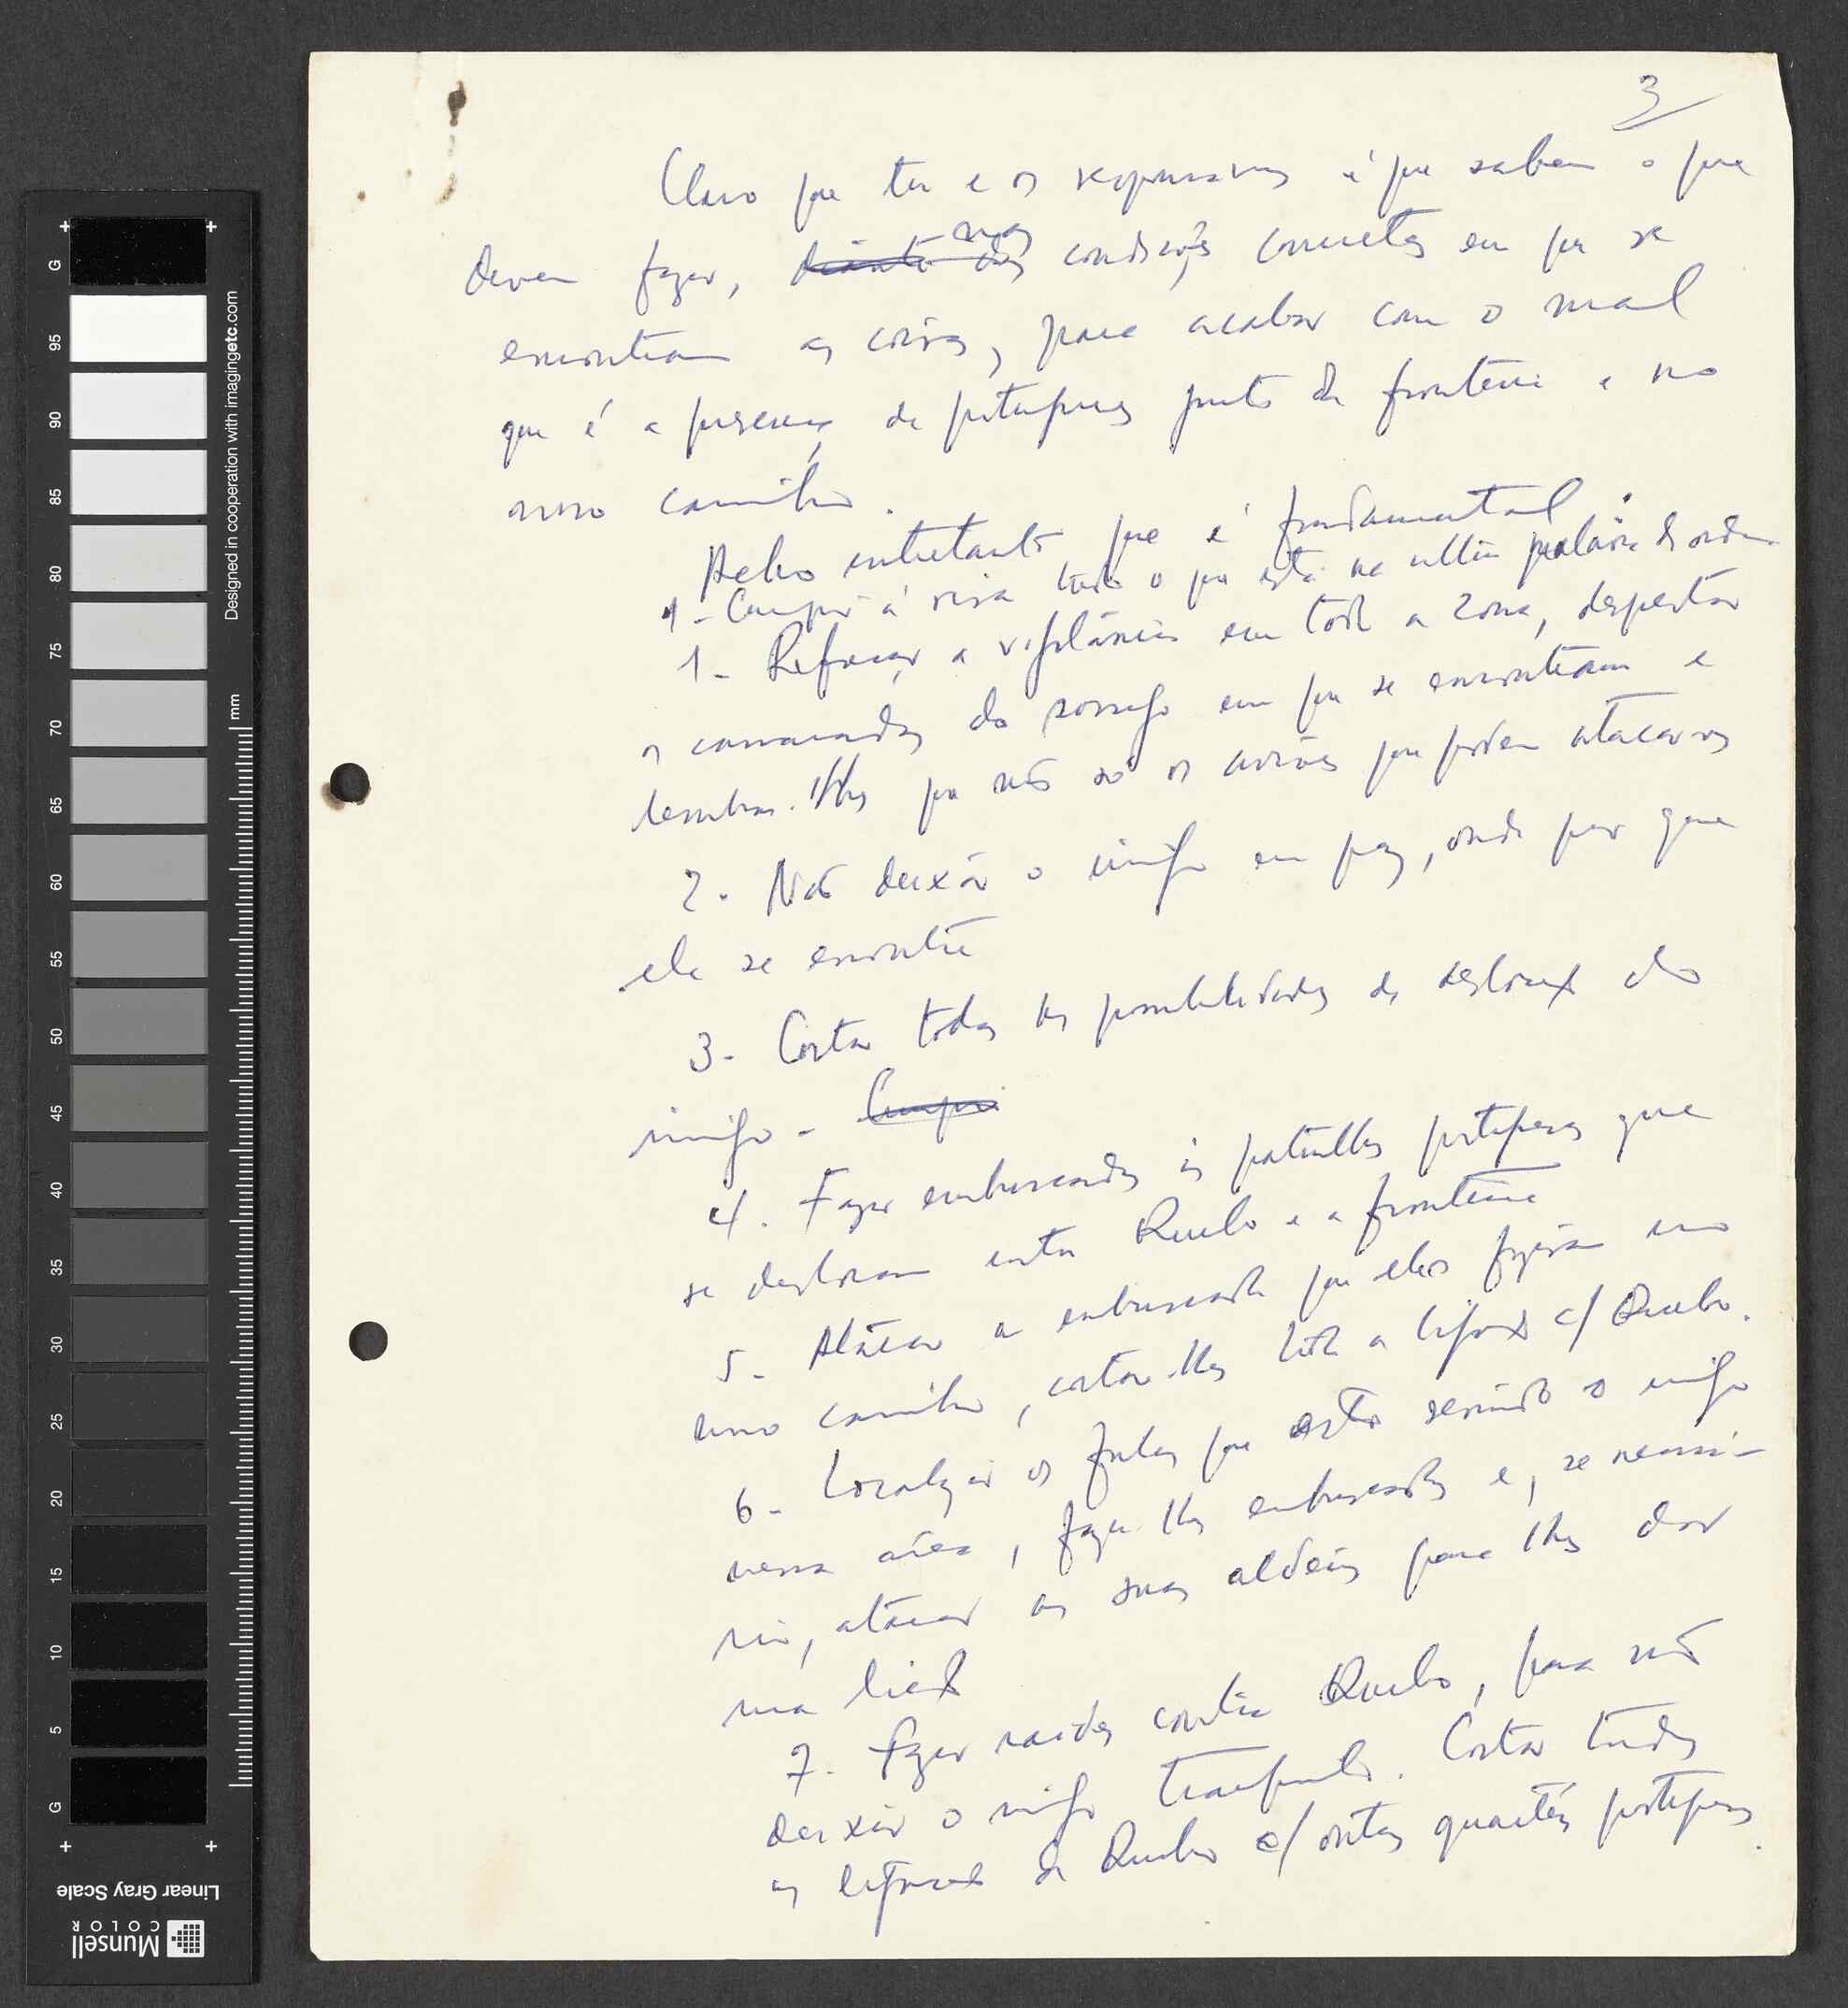 3
Claro que tu e os responsáveis é que sabem o que
devem fazer, diante das nas condições concretas em que se
encontram as coisas, para acabar com o mal
que é a presença de portugueses junto da fronteira e no
novo caminho.
Acho entretanto que é fundamental:
1- Cumprir à risca tudo o que está na última palavra de ordem
1- Reforçar a vigilância em toda a zona, despertar
os camaradas do sossego em que se encontram e
lembrar-lhes que não só os aviões que podem atacar-nos
2- Não deixar o inimigo em paz, onde quer que
ele se encontre
3- Cortar todas as possibilidades de desloc. do
inimigo - Cumprir
4. Fazer emboscadas às patrulhas portuguesas que
se deslocam entre Quebo e a fronteira
5- Atacar a emboscada que eles fizeram no
novo caminho, cortar-lhes toda a ligação c/ Quebo.
6- Localizar os fulas que estão servindo o inimigo
nessa área, fazer-lhes emboscadas e, se necessá-
rio, atacar as suas aldeias para lhes dar
uma lição
7. Fazer raides contra Quebo, para não
deixar o inimigo tranquilo. Cortar todas
as ligações de Quebo c/ outros quartéis portugueses.
Designed in cooperation with imagingetc.com
mm
G
95
90
85
80
75
70
65
60
55
50
45
40
35
30
25
20
15
10
5
G
Linear Gray Scale
Munsell
COLOR